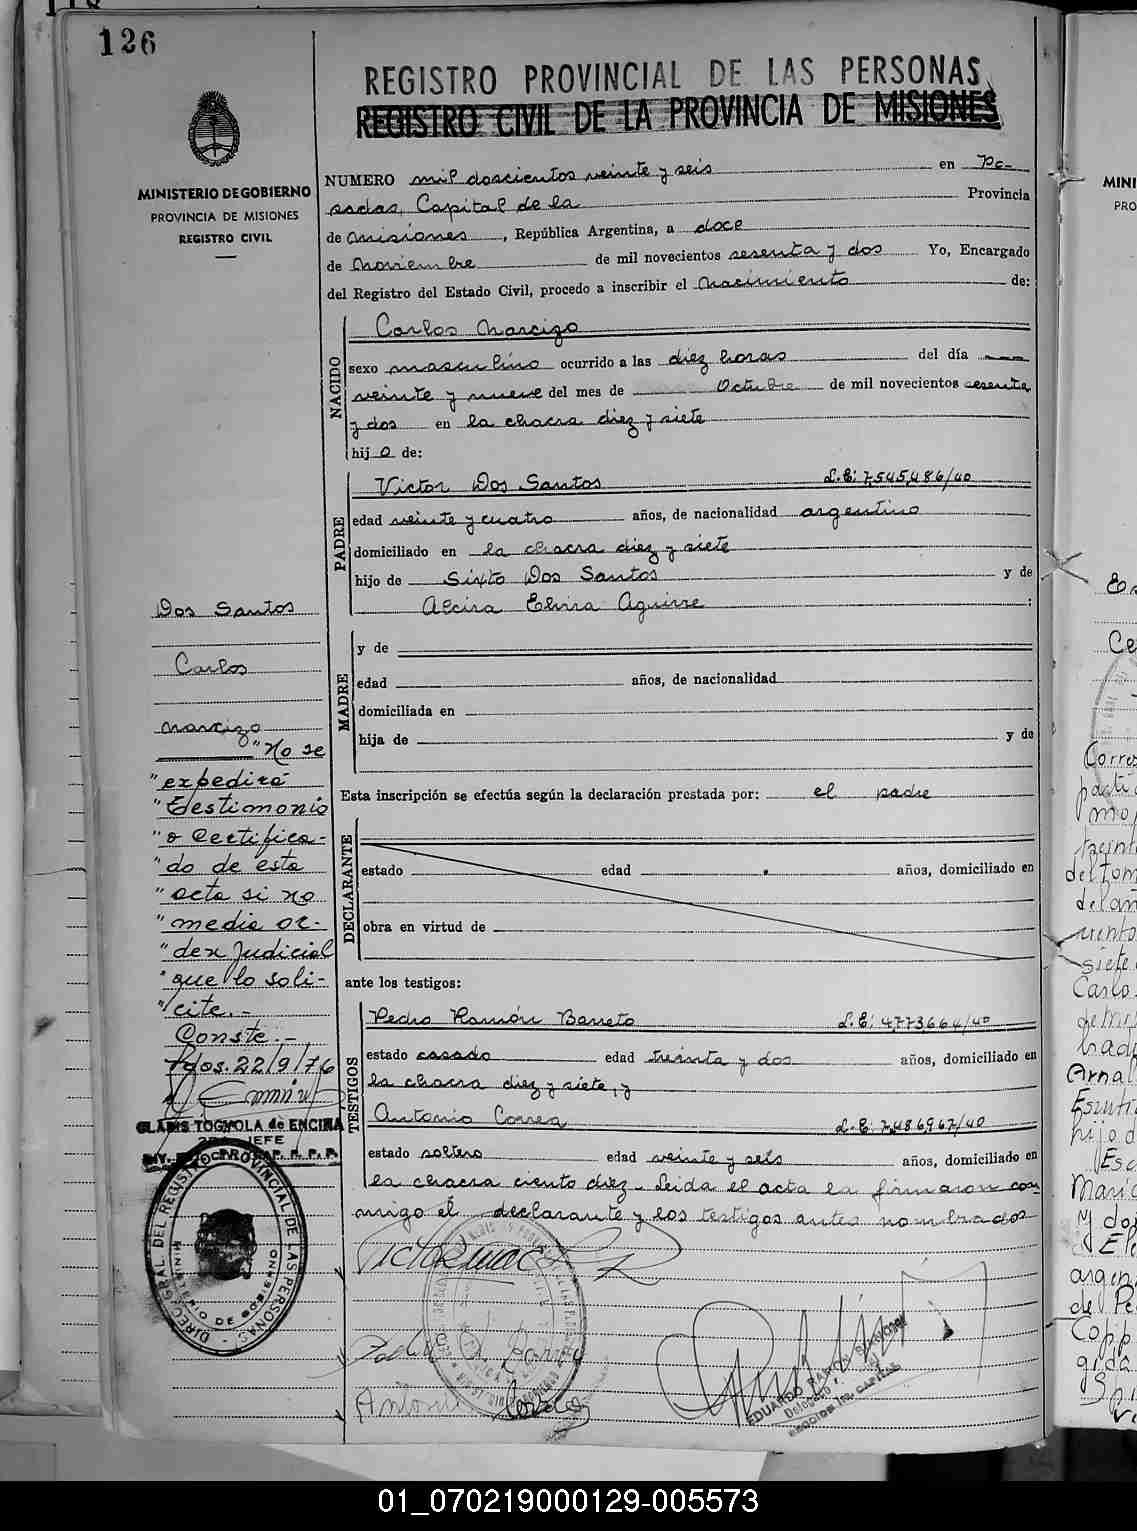 126
REGISTRO PROVINCIAL DE LAS PERSONAS
REGISTRO CIVIL DE LA PROVINCIA DE MISIONES
MINISTERIO DE GOBIERNO
PROVINCIA DE MISIONES
REGISTRO CIVIL
NUMERO mil doscientos veinte y seis en Po-
sadas, Capital de la Provincia
de Misiones, República Argentina, a doce
de Noviembre de mil novecientos sesenta y dos Yo, Encargado
del Registro del Estado Civil, procedo a inscribir el Nacimiento de:
NACIDO
Carlos Narcizo
sexo masculino ocurrido a las diez horas del día
veinte y nueve del mes de Octubre de mil novecientos sesenta
y dos en la chacra diez y siete
hijo de:
PADRE
Victor Dos Santos L.E: 7,545,486/40
edad veinte y cuatro años, de nacionalidad argentino
domiciliado en la chacra diez y siete
hijo de Sixto Dos Santos y de
Alcira Elvira Aguirre :
MADRE
y de
edad años, de nacionalidad
domiciliada en
hija de y de
Esta inscripción se efectúa según la declaración prestada por: el padre
DECLARANTE
estado edad años, domiciliado en
obra en virtud de
ante los testigos:
TESTIGOS
Pedro Ramón Barreto L.E: 4,773,664/40
estado casado edad treinta y dos años, domiciliado en
la chacra diez y siete, y
Antonio Correa L.E: 7,486,967/40
estado soltero edad veinte y seis años, domiciliado en
la chacra ciento diez. Leida el acta la firmaron con-
migo él declarante y los testigos antes nombrados
Dos Santos
Carlos
Narcizo
"No se
"expedirá
"Testimonio
"o Certifica-
"do de esta
"acta si no
"media or-
"den Judicial
"que lo soli-
"cite.-
Conste.-
Pdos. 22/9/76
GLADIS TOGNOLA de ENCINA
JEFE
DIREC. GRAL. DEL REGISTRO PROVINCIAL DE LAS PERSONAS
MINISTERIO DE GOBIERNO
EDUARDO RAMON
Delegado
MINI
PRO
01_070219000129-005573